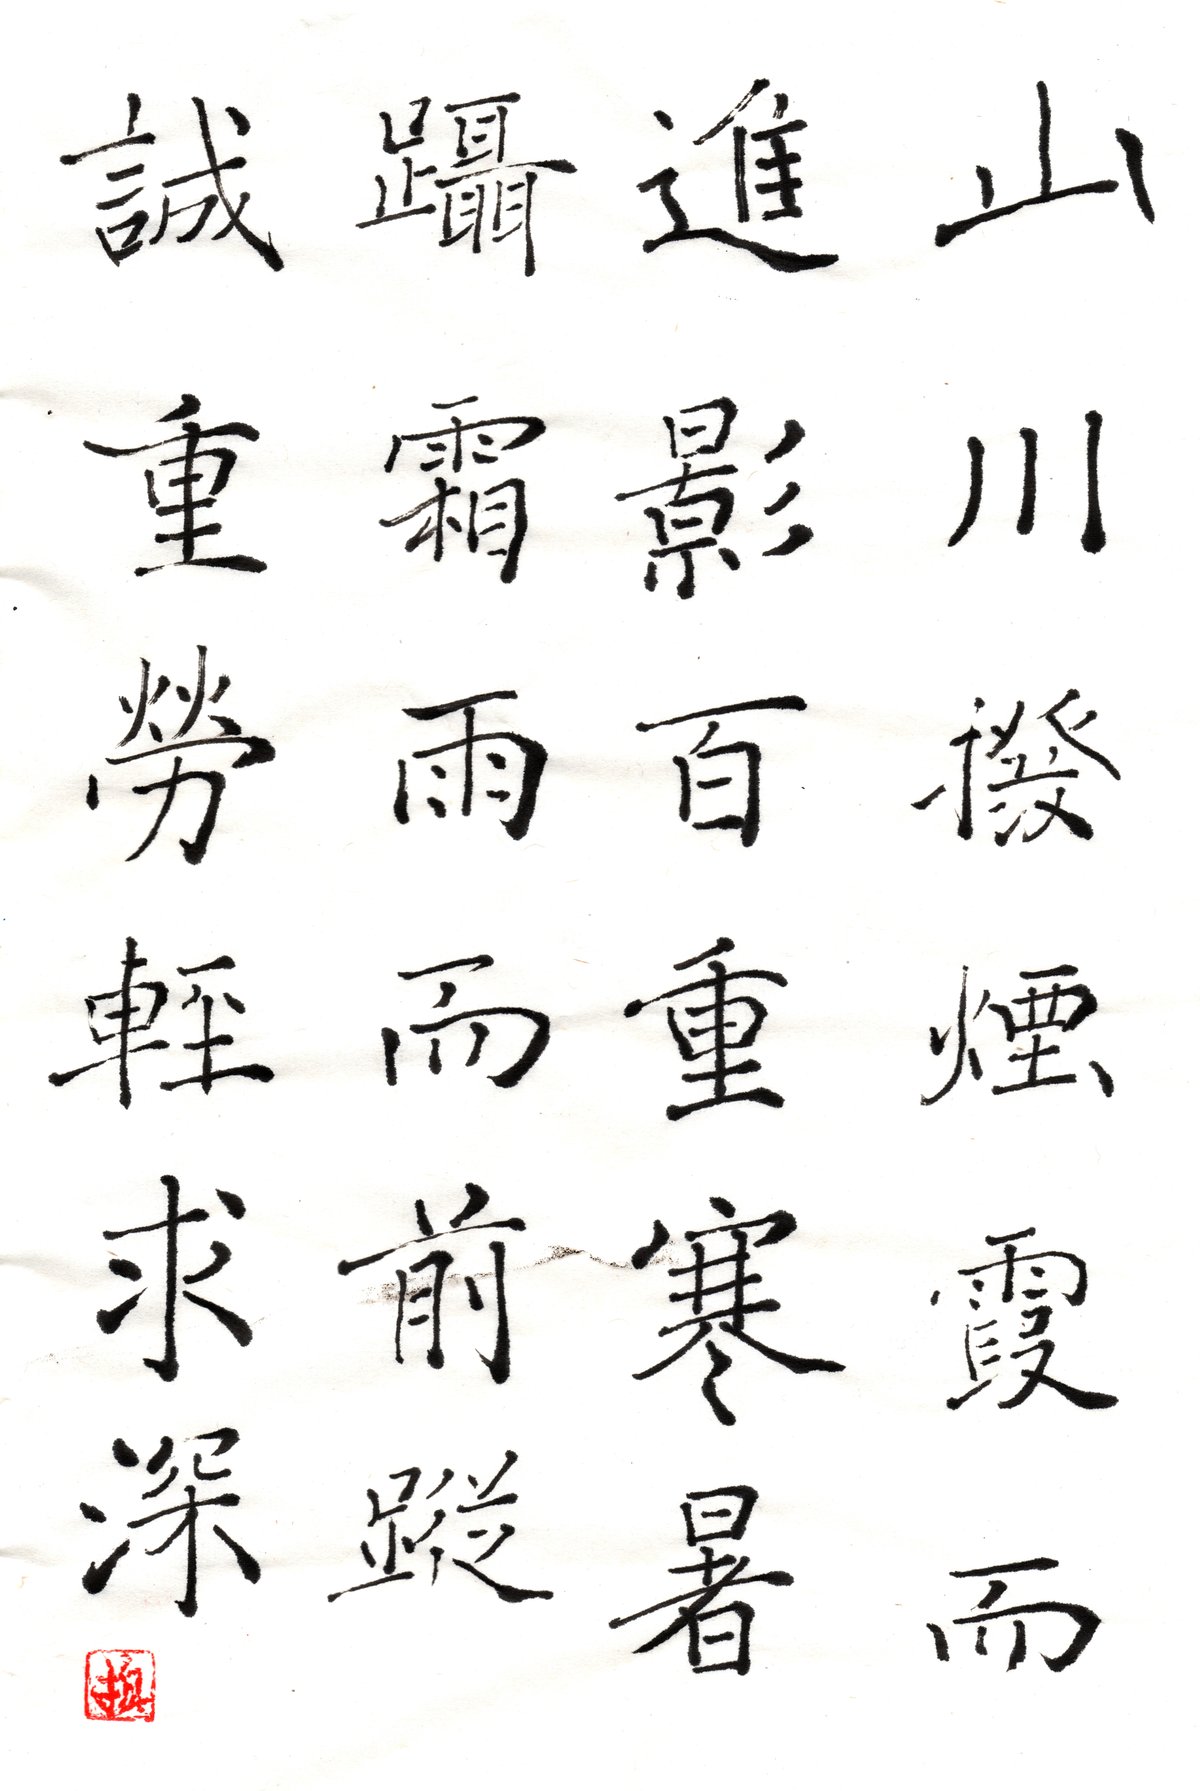 山川撥煙霞而
進影百重寒暑
躡霜雨而前蹤
誠重勞輕求深